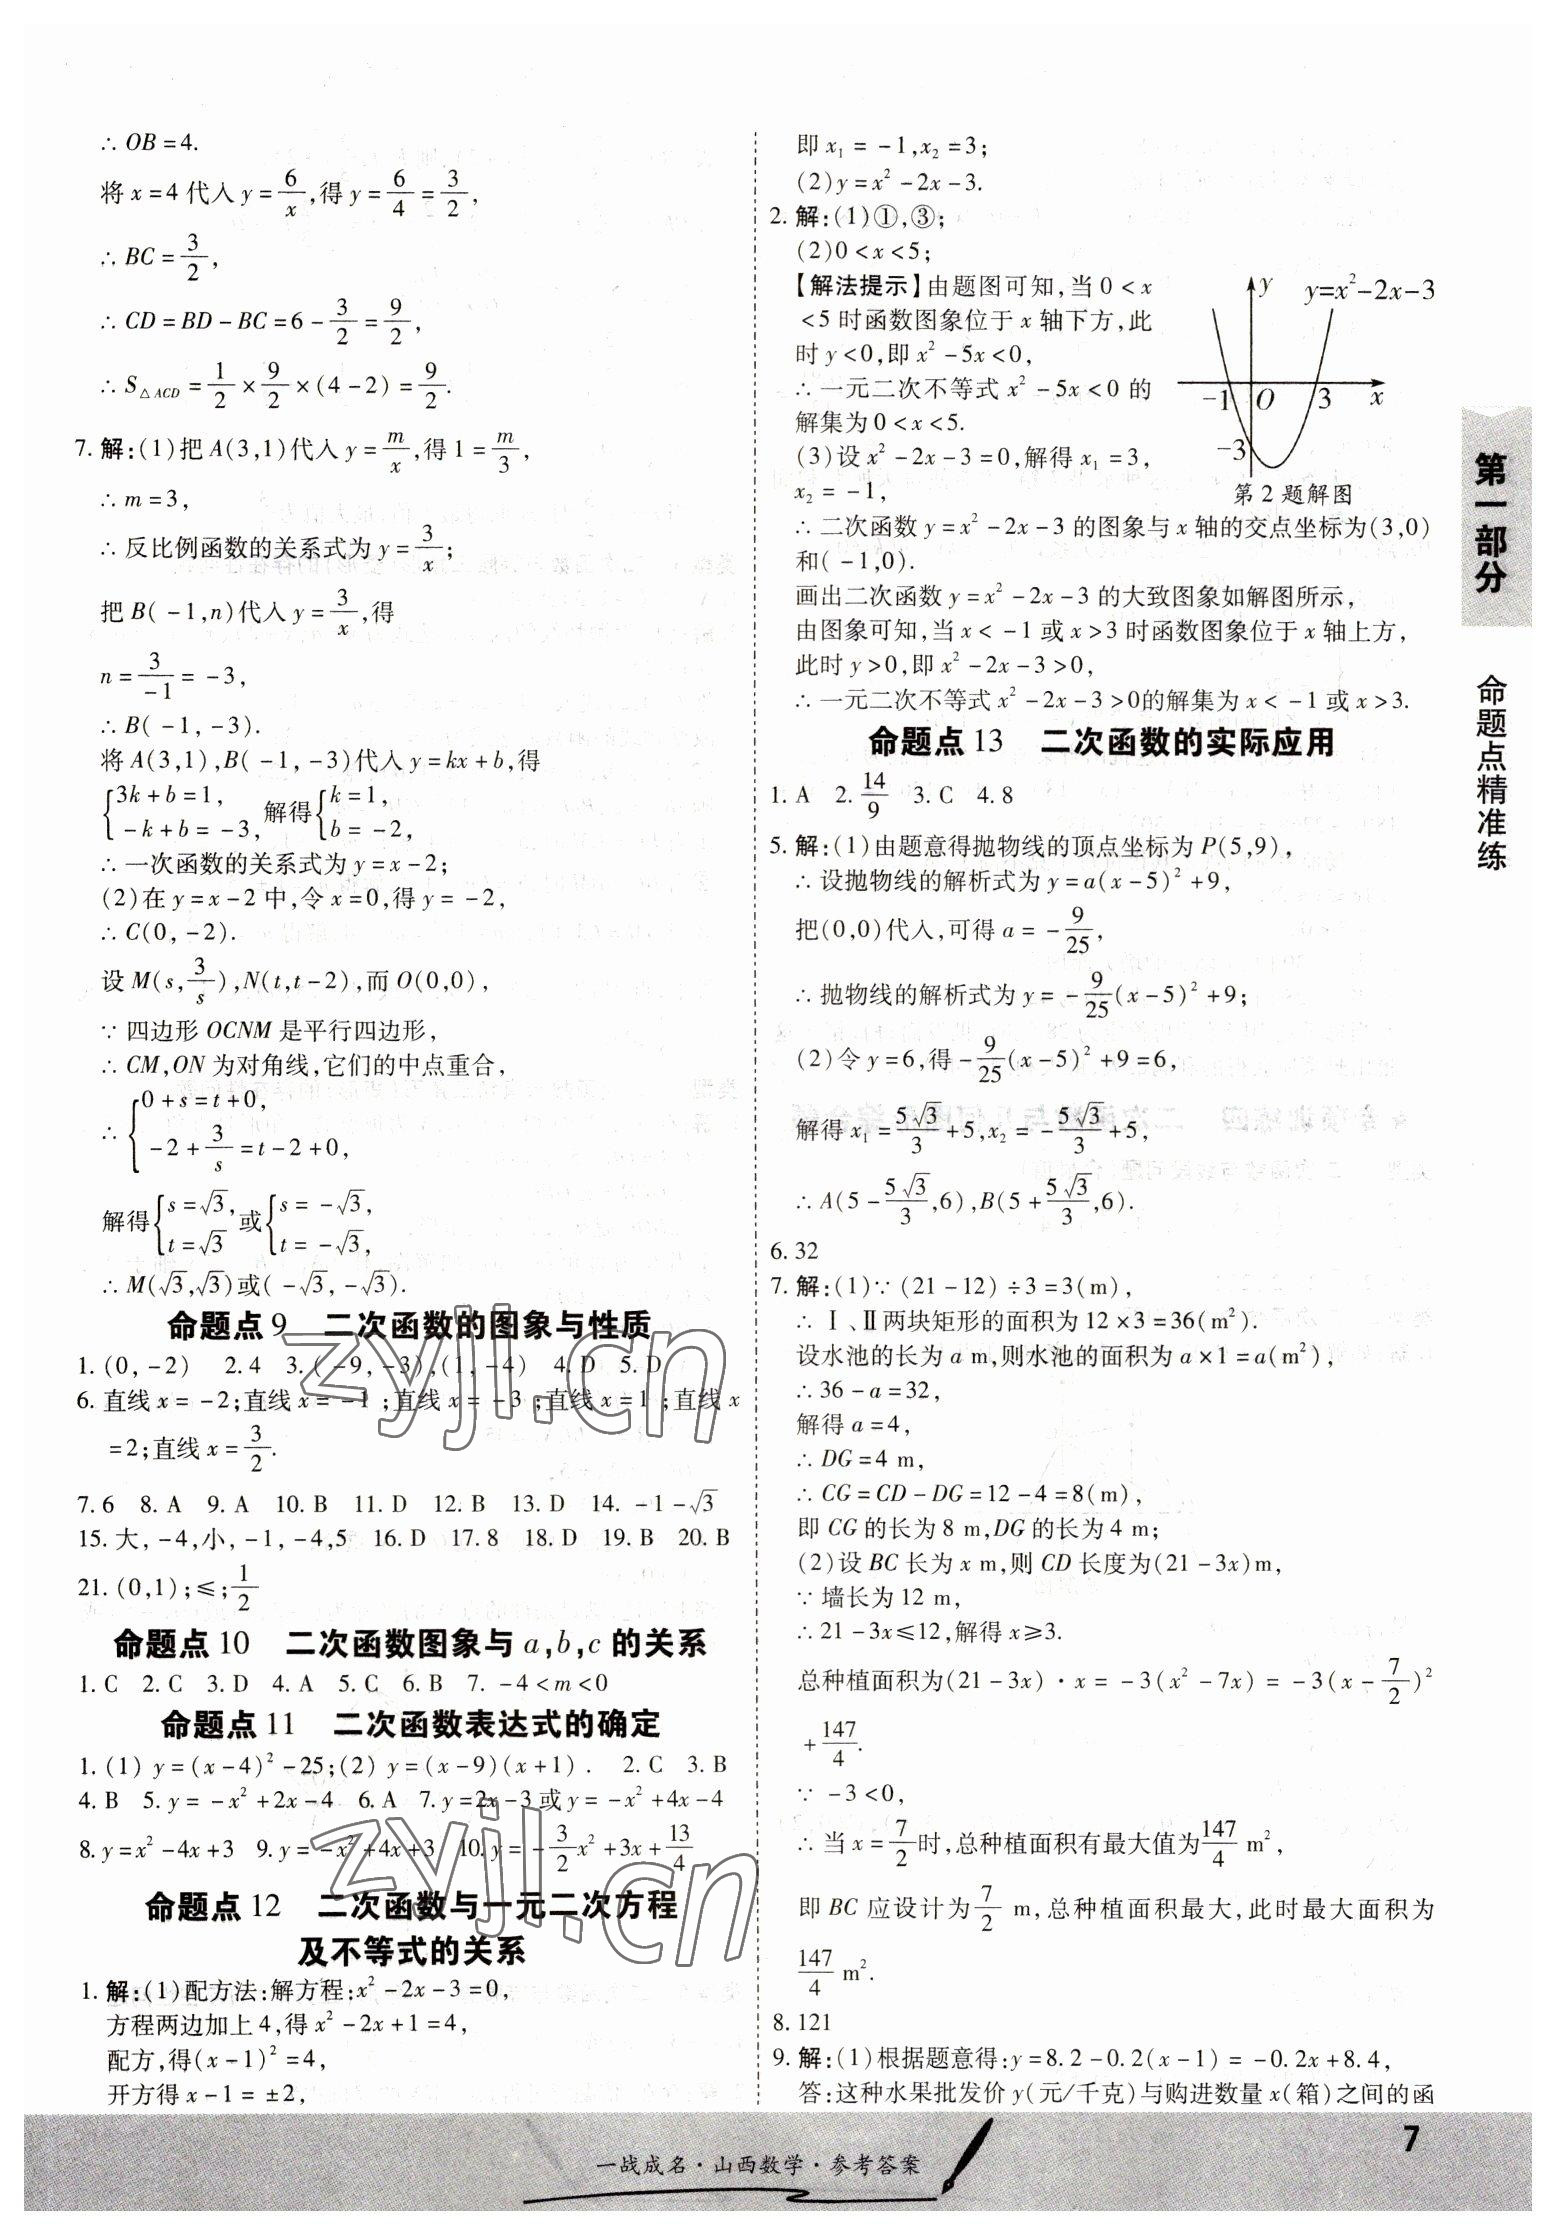 ∴ OB=4.
将 x=4 代入 y=6/x,得 y=6/4=3/2,
∴ BC=3/2,
∴ CD=BD-BC=6-3/2=9/2,
∴ S△ACD=1/2×9/2×(4-2)=9/2.
7. 解:(1)把 A(3,1)代入 y=m/x,得 1=m/3,
∴ m=3,
∴ 反比例函数的关系式为 y=3/x;
把 B(-1,n)代入 y=3/x,得
n=3/-1=-3,
∴ B(-1,-3).
将 A(3,1),B(-1,-3)代入 y=kx+b,得
{3k+b=1, -k+b=-3, 解得{k=1, b=-2,
∴ 一次函数的关系式为 y=x-2;
(2)在 y=x-2 中,令 x=0,得 y=-2,
∴ C(0,-2).
设 M(s,3/s),N(t,t-2),而 O(0,0),
∵ 四边形 OCNM 是平行四边形,
∴ CM,ON 为对角线,它们的中点重合,
∴ {0+s=t+0, -2+3/s=t-2+0,
解得{s=√3, t=√3 或{s=-√3, t=-√3,
∴ M(√3,√3)或(-√3,-√3).
命题点 9 二次函数的图象与性质
1. (0,-2) 2. 4 3. (-9,-3),(1,-4) 4. D 5. D
6. 直线 x=-2;直线 x=-1;直线 x=-3;直线 x=1;直线 x
=2;直线 x=3/2.
7. 6 8. A 9. A 10. B 11. D 12. B 13. D 14. -1-√3
15. 大,-4,小,-1,-4,5 16. D 17. 8 18. D 19. B 20. B
21. (0,1);≤;1/2
命题点 10 二次函数图象与 a,b,c 的关系
1. C 2. C 3. D 4. A 5. C 6. B 7. -4<m<0
命题点 11 二次函数表达式的确定
1. (1) y=(x-4)²-25;(2) y=(x-9)(x+1). 2. C 3. B
4. B 5. y=-x²+2x-4 6. A 7. y=2x-3 或 y=-x²+4x-4
8. y=x²-4x+3 9. y=-x²+4x+3 10. y=-3/2x²+3x+13/4
命题点 12 二次函数与一元二次方程
及不等式的关系
1. 解:(1)配方法:解方程:x²-2x-3=0,
方程两边加上 4,得 x²-2x+1=4,
配方,得(x-1)²=4,
开方得 x-1=±2,
即 x₁=-1,x₂=3;
(2)y=x²-2x-3.
2. 解:(1)①,③;
(2)0<x<5;
【解法提示】由题图可知,当 0<x
<5 时函数图象位于 x 轴下方,此
时 y<0,即 x²-5x<0,
∴ 一元二次不等式 x²-5x<0 的
解集为 0<x<5.
(3)设 x²-2x-3=0,解得 x₁=3,
x₂=-1,
y
y=x²-2x-3
-1 O 3 x
-3
第 2 题解图
∴ 二次函数 y=x²-2x-3 的图象与 x 轴的交点坐标为(3,0)
和(-1,0).
画出二次函数 y=x²-2x-3 的大致图象如解图所示,
由图象可知,当 x<-1 或 x>3 时函数图象位于 x 轴上方,
此时 y>0,即 x²-2x-3>0,
∴ 一元二次不等式 x²-2x-3>0的解集为 x<-1 或 x>3.
命题点 13 二次函数的实际应用
1. A 2. 14/9 3. C 4. 8
5. 解:(1)由题意得抛物线的顶点坐标为 P(5,9),
∴ 设抛物线的解析式为 y=a(x-5)²+9,
把(0,0)代入,可得 a=-9/25,
∴ 抛物线的解析式为 y=-9/25(x-5)²+9;
(2)令 y=6,得-9/25(x-5)²+9=6,
解得 x₁=5√3/3+5,x₂=-5√3/3+5,
∴ A(5-5√3/3,6),B(5+5√3/3,6).
6. 32
7. 解:(1)∵ (21-12)÷3=3(m),
∴ Ⅰ、Ⅱ两块矩形的面积为 12×3=36(m²).
设水池的长为 a m,则水池的面积为 a×1=a(m²),
∴ 36-a=32,
解得 a=4,
∴ DG=4 m,
∴ CG=CD-DG=12-4=8(m),
即 CG 的长为 8 m,DG 的长为 4 m;
(2)设 BC 长为 x m,则 CD 长度为(21-3x)m,
∵ 墙长为 12 m,
∴ 21-3x≤12,解得 x≥3.
总种植面积为(21-3x)·x=-3(x²-7x)=-3(x-7/2)²
+147/4.
∵ -3<0,
∴ 当 x=7/2时,总种植面积有最大值为147/4 m²,
即 BC 应设计为7/2 m,总种植面积最大,此时最大面积为
147/4 m².
8. 121
9. 解:(1)根据题意得:y=8.2-0.2(x-1)=-0.2x+8.4,
答:这种水果批发价 y(元/千克)与购进数量 x(箱)之间的函
第一部分
命题点精准练
zyjl.cn
zyjl.cn
一战成名·山西数学·参考答案
7